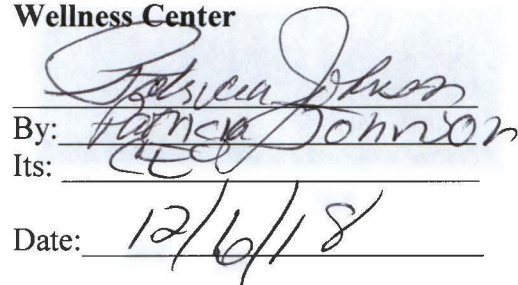 Wellness Center
Patricia Johnson
By: Patricia Johnson
Its: CEO
Date: 12/6/18